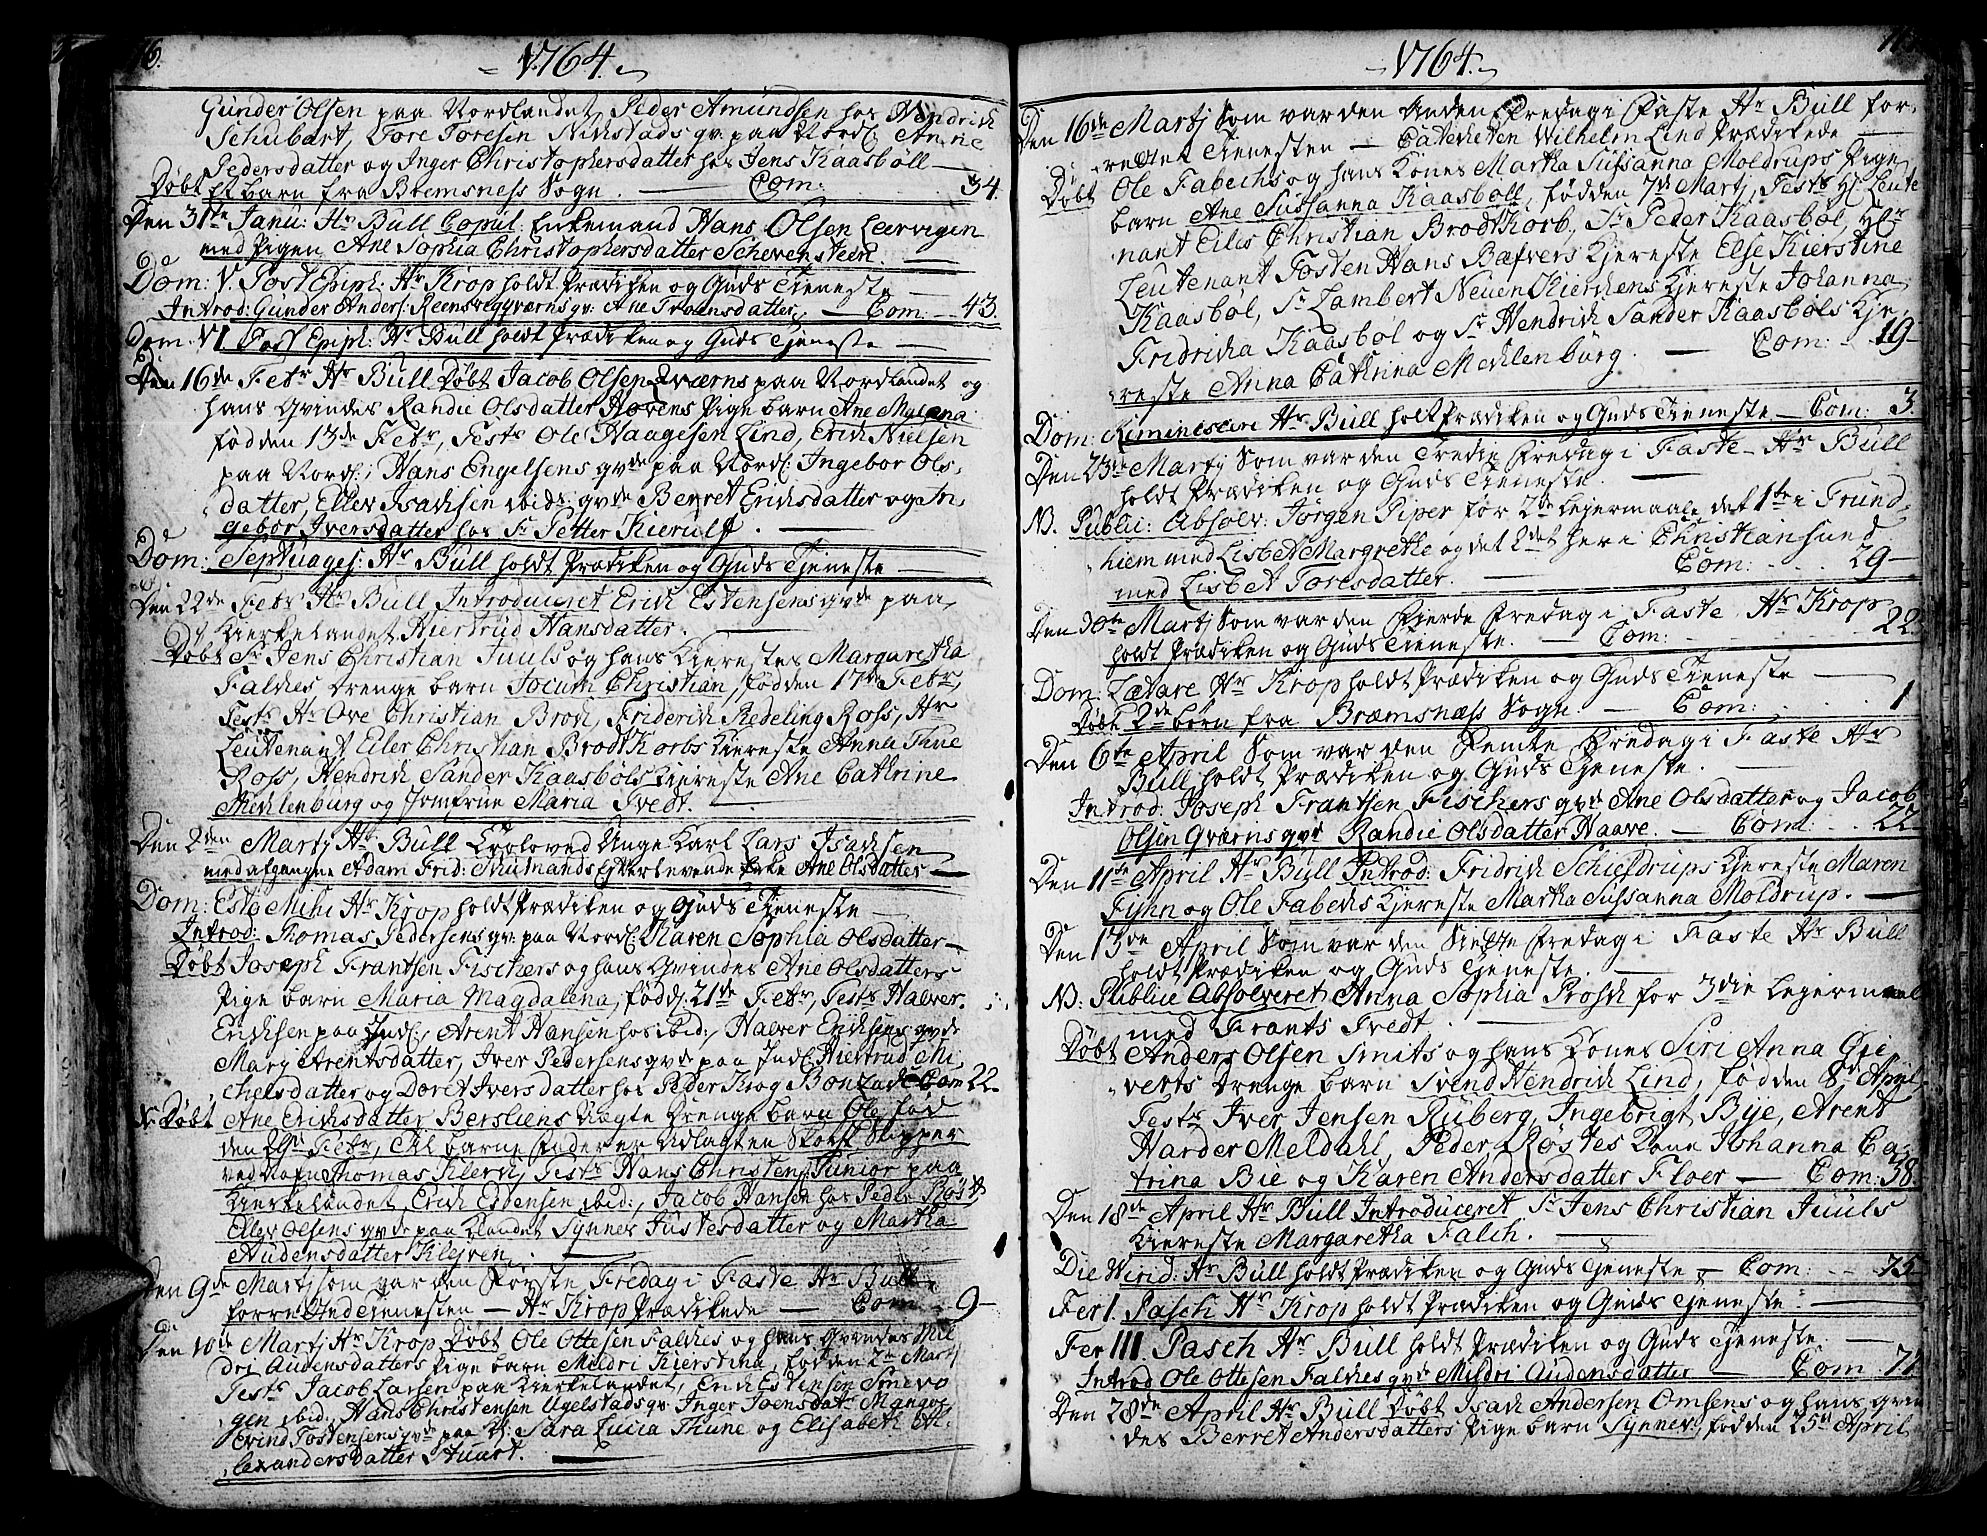 1764.
Gunder Olsen paa Nordlandet, Peder Amundsen hos Hendrich
Schubart, Tore Toresen Nikstads gv: paa Nordl: Anne
Pedersdatter og Inger Christophersdatter hos Jens Kaasbøll
Døbt Et barn fra Bremsness Sogn. Com: 34.
Den 31te Janu: Hr Bull Copul: Enkemand Hans Olsen Leervigen
med Pigen Ane Sophia Christophersdatter Schevensteen.
Dom: V. Post Epiph: Hr Krop holdt Prædiken og Guds Tieneste
Introd: Gunder Anders: Reensvegqværns gv: Ane Troensdatter, Com: 43.
Dom: VI Post Epiph: Hr Bull holdt Prædiken og Guds Tjeneste
Den 16de Febr Hr Bull Døbt Jacob Olsen Qværns paa Nordlandet og
hans Qvindes Randie Olsdatter Hovens Pige barn Ane Malena
fød den 13de Febr, Testr Ole Haagesen Lind, Erich Nielsen
paa Nordl:, Hans Engelsens gvde paa Nordl: Ingebor Ols-
datter, Ellev Isachsen ibid: gvde Berret Erichsdatter og In-
gebor Iversdatter hos Sr Petter Kierulf.
Dom: Septuages: Hr Bull holdt Prædiken og Guds Tjeneste
Den 22de Febr Hr Bull Introduceret Erich Estensens gvde paa
Kierkelandet Hiertrud Hansdatter.
Døbt Sr Jens Christian Juuls og hans Kierestes Margaretha
Falches Drenge barn Jocum Christian, fød den 17de Febr,
Testr Hr Ove Christian Broch, Friderich Redeling Ross, Hr
Leutenant Eiler Christian BrodtKorbs Kiereste Anna Thue
Ross, Hendrich Sander Kaasbøls Kiereste Ane Cathrine
Mechlenburg og Jomfrue Maria Tvedt.
Den 2den Martj Hr Bull Troloved Unge Karl Lars Isachsen
med afgangne Adam Frid: Muhmands Efterlevende Enke Ane Olsdatter
Dom: Esto Mihi Hr Krop holdt Prædiken og Guds Tieneste
Introd: Thomas Pedersens gv: paa Nordl: Karen Sophia Olsdatter
Døbt Joseph Frantsen Fischers og hans Qvindes Ane Olsdatters
Pige barn Maria Magdalena, fød d: 21de Febr, Testr Halver
Erichsen paa Indl:, Arent Hansen hos ibid:, Halver Erichsens gvde
Mary Arentsdatter, Iver Pedersens gvde paa Indl: Hiertrud Mi-
chelsdatter og Doret Iversdatter hos Peder Krog Com 22
Døbt Ane Erichsdatter Bersliens Uægte Drenge barn Ole fød
den 29de Febr, Til barne Fader er Udlagt en Skotsk Skipper
ved Nafn Thomas Klerch, Testr Hans Christens: Junior paa
Kierkelandet, Erich Estensen ibid:, Jacob Hansen hos Peder Røst,
Ellev Olsens gvde paa Landet Synnev Justesdatter og Martha
Audensdatter Kleven.
Den 9de Martj som var den Første Fredag i Faste Hr Bull
forrettet Tienesten — Hr Krop Prædikede — Com: 9
Den 10de Martj Hr Krop Døbt Ole Ottesen Falches og hans Qvindes Mil-
dri Audensdatters Pige barn Mildri Kierstina, fød den 2den Martj
Testr Jacob Larsen paa Kierkelandet, Erich Estensen Smevo-
gen ibid:, Hans Christensen Ugelstads gv: Inger Joensdatr
Evind Tostensens gvde paa Sara Lucia Thune og Elisabeth A-
lexandersdatter Stuart.
1764.
Den 16de Martj Som var den Anden Fredag i Faste Hr Bull for-
rettet Tienesten — Catecheten Wilhelm Lind Prædikede
Døbt Ole Fabechs og hans Kones Martha Sussanna Moldrups Pige
barn Ane Sussanna Kaasbøll, fød den 7de Martj, Testr Hr Leute-
nant Eiler Christian BrodtKorb, Sr Peder Kaasbøl, Hr
Leutenant Tosten Hans Bæfvers Kiereste Else Kierstine
Kaasbøl, Sr Lambert Neuen Kierchens Kiereste Johanna
Fridricha Kaasbøl og Sr Hendrich Sander Kaasbøls Kie-
reste Anna Cathrina Mechlenburg. Com: 19
Dom: Reminiscere Hr Bull holdt Prædiken og Guds Tieneste — Com: 3.
Den 23de Martj Som var den Tredie Fredag i Faste Hr Bull
holdt Prædiken og Guds Tieneste.
N. Public: Absolv: Jørgen Piper for 2de Lejermaale det 1te i Trund-
hiem med Lisbet Margrethe og det 2det her i Christiansund
med Lisbet Toresdatter. Com: 29
Den 30te Martj Som var den Fierde Fredag i Faste Hr Krop
holdt Prædiken og Guds Tieneste. — Com: 22
Dom: Lætare Hr Krop holdt Prædiken og Guds Tieneste
Døbt 2de børn fra Bræmsnæss Sogn. — Com: 1
Den 6te April Som var den Femte Fredag i Faste Hr
Bull holdt Prædiken og Guds Tjeneste.
Introd. Joseph Frantsen Fischers gvde Ane Olsdatter og Jacob
Olsen Qværns gvde Randie Olsdatter Haave. — Com: 22
Den 11te April Hr Bull Introd: Fridrich Schieldrups Kjereste Maren
Fyhn og Ole Fabechs Kjereste Martha Sussanna Moldrup.
Den 13de April Som var den Siette Fredag i Faste Hr Bull
holdt Prædiken og Guds Tieneste.
N: Publice Absolveret Anna Sophia Prosch for 3die Lejermaal
med Frants Tvedt.
Døbt Anders Olsen Smits og hans Kones Siri Anna Gie-
verts Drenge barn Svend Hendrich Lind, fød den 8de April
Testr Iver Jensen Ruberg, Ingebrigt Bije, Arent
Harder Meldahl, Peder Røstes Kone Johanna Ca-
trina Bie og Karen Andersdatter Floer — Com: 38
Den 18de April Hr Bull Introduceret Sr Jens Christian Juuls
Kiereste Margaretha Falch.
Die Virid: Hr Bull holdt Prædiken og Guds Tjeneste — Com: 75
Fer I. Pasch Hr Krop holdt Prædiken og Guds Tjeneste.
Fer III Pasch Hr Bull holdt Prædiken og Guds Tjeneste.
Introd Ole Ottesen Falches gvde Mildri Audensdatter Com:
Den 28de April Hr Bull Døbt Isach Andersen Omsens og hans Qvin-
des Berret Andersdatters Pige barn Synnev, fød den 25de April